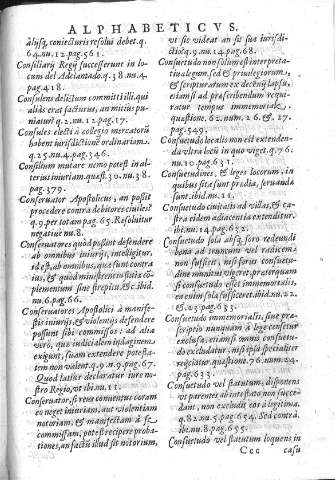 ALPHABETICVS.
alijsq; coniecturis resolui debet. q.
64. nu. 12. pag. 561.
Consiliarij Regij successerunt in lo-
cum del Adelantado. q. 38. nu. 4.
pag. 418.
Consulens delictum committi illi, qui
alias erat facturus, an mitius pu-
niatur? q. 2. nu. 12. pag. 17.
Consules electi à collegio mercatorũ
habent iurisdictione ordinariam.
q. 25. nu. 4. pag. 346.
Consilium mutare nemo potest in al-
terius iniuriam. quæst. 30. nu. 38.
pag. 379.
Conseruator Apostolicus, an possit
procedere contra debitores ciuiles?
q. 9. per totam pag. 65. Resoluitur
negatiuè nu. 8.
Conseruatores quòd possint defendere
ab omnibus iniurijs, intelligitur,
id est, ab omnibus, quæ sunt contra
ius, & quòd ministrent iustitiæ cõ-
plementum sine strepitu, &c. ibid.
nu. 6. pag. 66.
Conseruatores Apostolici à manife-
stis iniurijs, & violentijs defendere
possunt sibi commissos: ad alia
verò, quæ iudicialem indaginem
exigunt, suam extendere potesta-
tem non valent. q. 9. n. 9. pag. 67.
Quod latius declaratur iure no-
stro Regio, vt ibi nu. 11.
Conseruator, si reus conuentus coram
eo neget iniuriam, aut violentiam
notoriam, & manifestam à se
commissam, potest recipere proba-
tiones, an factũ illud sit notorium,
vt sic videat an sit sua iurisdi-
ctio. q. 9. nu. 14. pag. 68.
Consuetudo non solum est interpreta-
tiua legum, sed & priuilegiorum,
& scripturarum ex decẽnij lapsu,
etiamsi ad præscribendum requi-
ratur tempus immemoriale.
quæstione. 62. num. 26. & 27.
pag. 549.
Consuetudo localis non est extenden-
da vltra locũ in quo viget. q. 76.
nu. 10. pag. 631.
Consuetudines, & leges locorum, in
quibus sita sunt prædia, seruanda
sunt. ibid. nu. 21.
Consuetudo ciuitatis ad villas, & ca-
stra eidem adiacentia extenditur.
ibi. nu. 14. pag. 632.
Consuetudo sola absq; foro redeundi
bona ad truncum vel radicem
non sufficeret, nisi forus consuetu-
dine munitus vigeret, præterquam
si consuetudo esset immemorialis,
ea enim sola sufficeret. ibid. nu. 22.
& 23. pag. 633.
Consuetudo immemorialis, siue præ-
scriptio nunquam à lege censetur
exclusa, etiamsi omnis consuetu-
do excludatur, nisi ipsa specialiter
reijciatur. quæstione. 76. num. 24.
pag. 633.
Consuetudo vel statutum, disponens
vt parentes ab intestato non succe-
dant, non excludit eos à legitima.
q. 82. nu. 5. pag. 654. Sed contrà
ibi. nu. 8. pag. 655.
Consuetudo vel statutum loquens in
Ccc casu